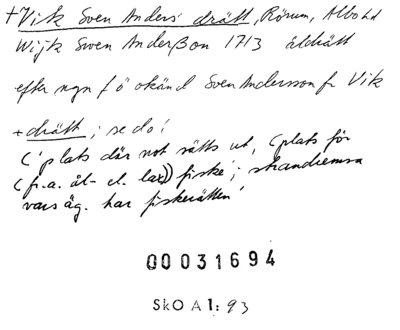 +Vik Sven Anders' drätt, Rörum, Albo hd
Wijk Swen Anderßon 1713 åldrätt
efter ngn f ö okänd Sven Andersson fr Vik
+drätt; se do!
('plats där not sätts ut, (plats för
(fr.a. ål- el. lax)) fiske'; strandremsa
vars äg. har fiskerätten'
00031694
SkO A 1: 93